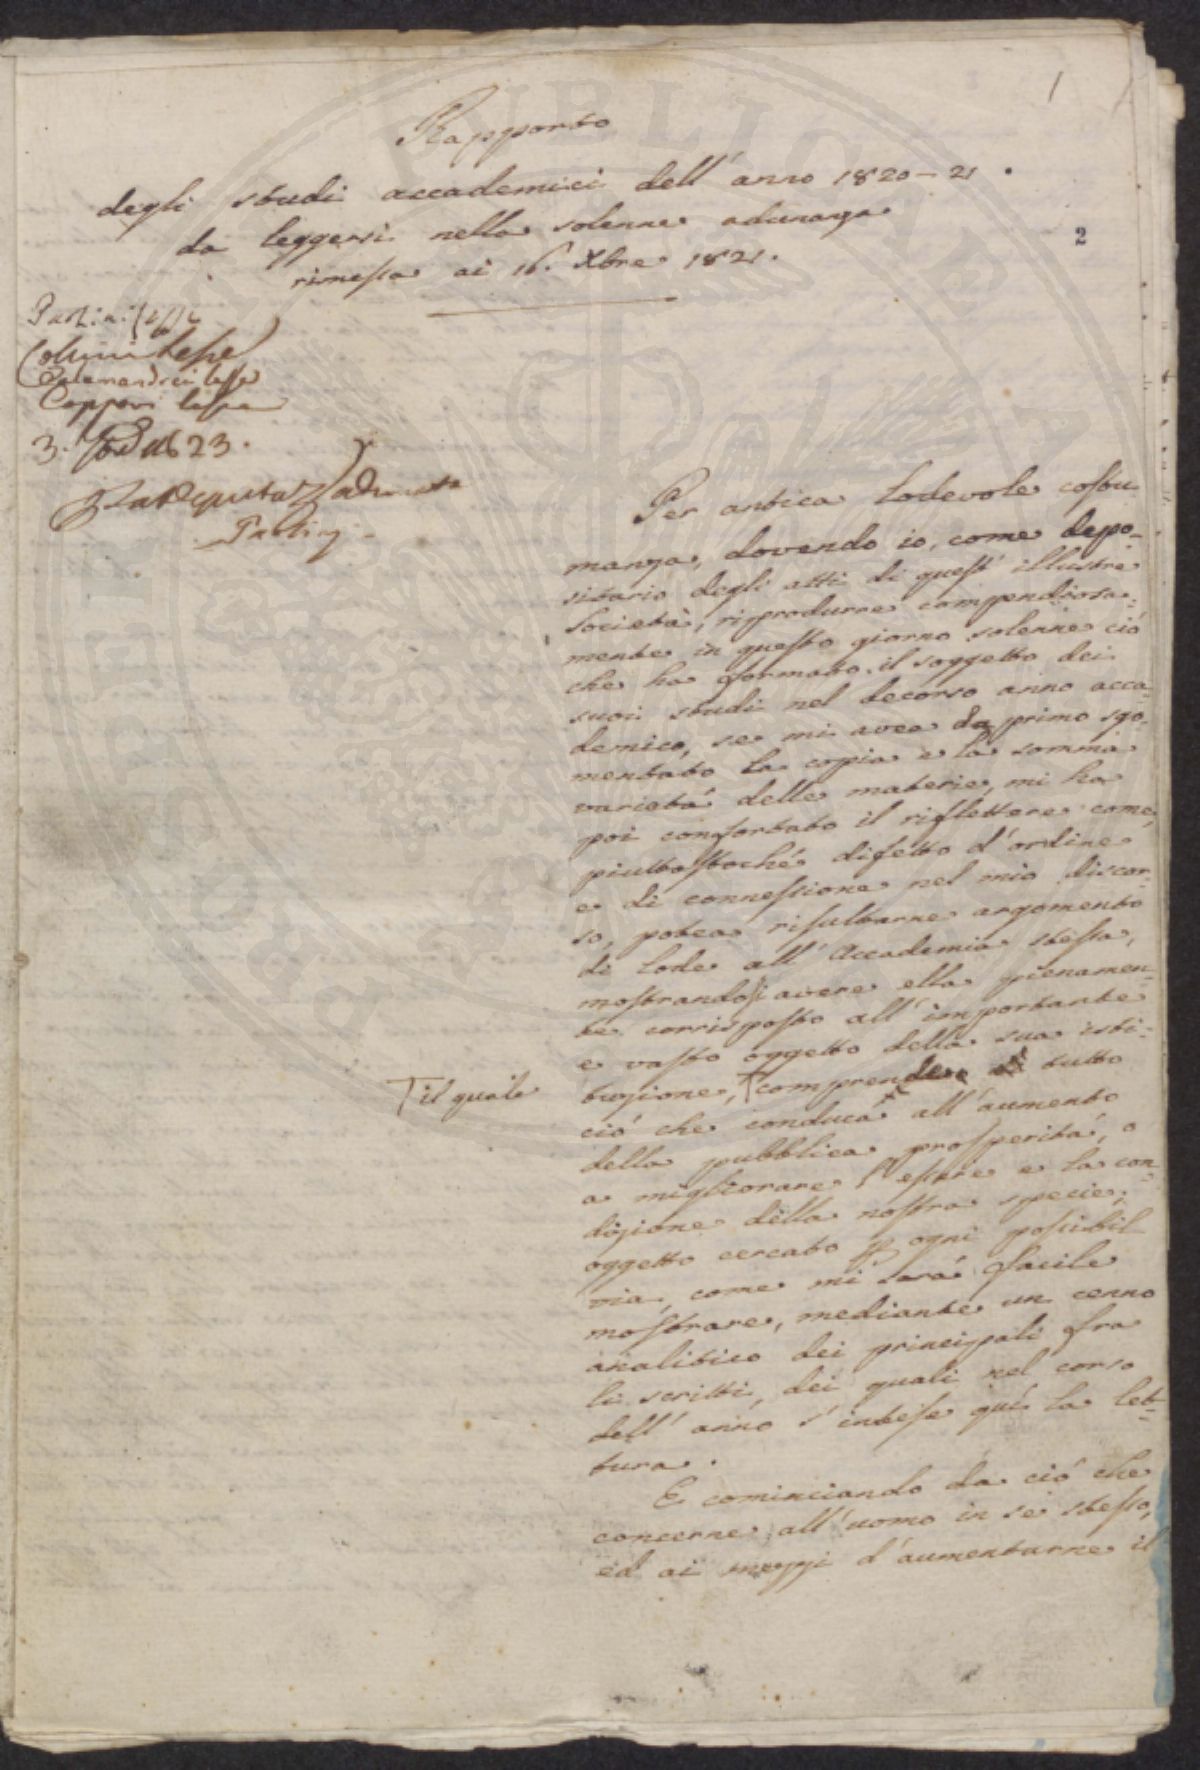 1
Rapporto
degli studi accademici dell'anno 1820-21.
da leggersi nella solenne adunanza
rimessa ai 16. Xbre 1821.
2
lesse
Calamandrei lesse
Capponi lesse
3. 1823.
Adunata
Per antica lodevole costu
manza, dovendo io, come depo-
sitario degli atti di quest' illustre
Società, riprodurre compendiosa-
mente in questo giorno solenne ciò
che ha formato il soggetto dei
suoi studi nel decorso anno acca-
demico, se mi avea da primo sgo-
mentato la copia e la somma
varietá delle materie, mi ha
poi confortato il riflettere come,
piuttostoché difetto d'ordine
e di connessione nel mio discor-
so, potea risultarne argomento
di lode all' Accademia stessa,
mostrandosi avere ella pienamen-
te corrisposto all' importante
e vasto oggetto della sua isti-
tuzione, comprende tutto
il quale
ció che conduca all' aumento
della pubblica prosperitá, o
a migliorare l'essere e la con-
dizione della nostra specie;
oggetto cercato p ogni possibil
via, come mi sará facile
mostrare, mediante un cenno
analitico dei principali fra
li scritti, dei quali nel corso
dell' anno s' intese quí la let-
tura.
E cominciando da ció che
concerne all' uomo in se stesso,
ed ai mezzi d'aumentarne il